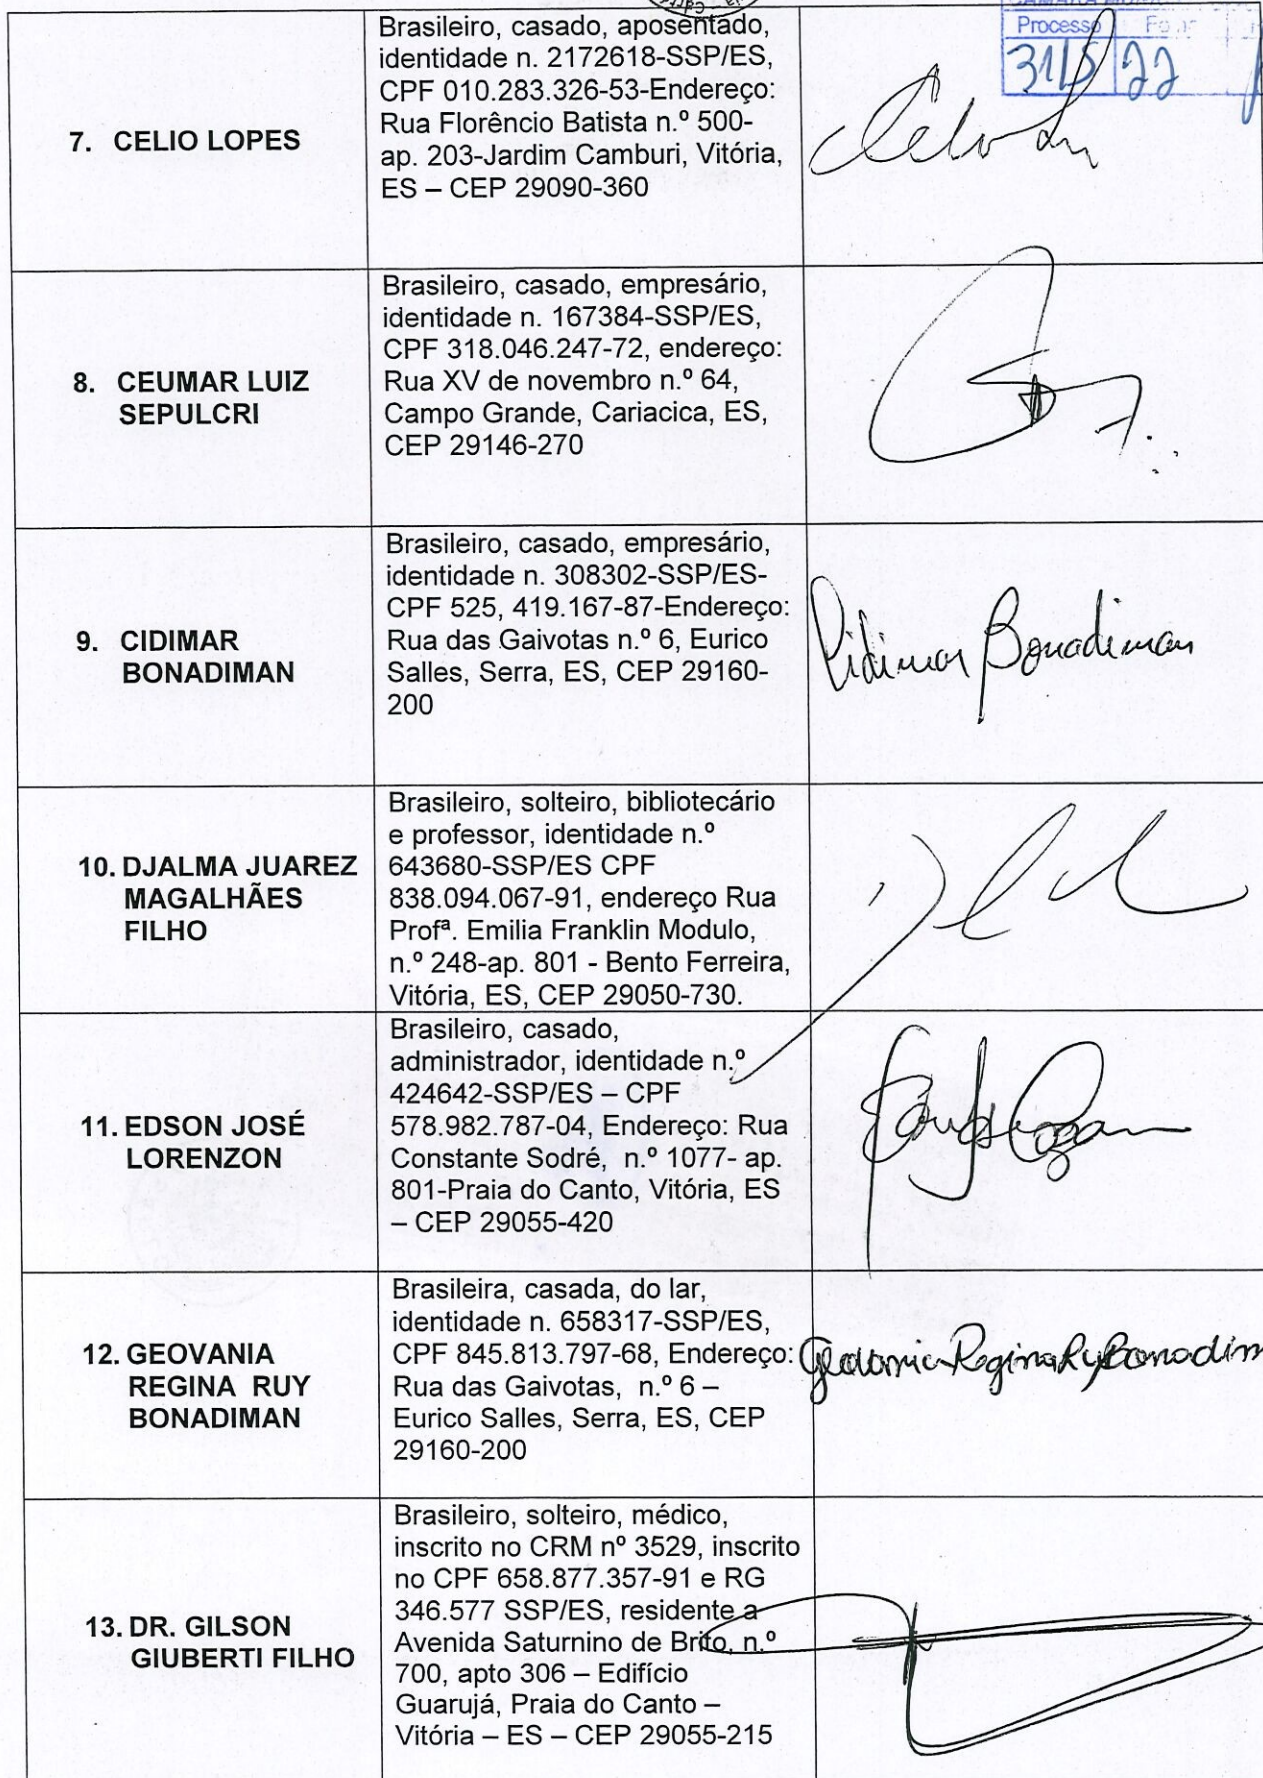 Processo
3115 22
7. CELIO LOPES
Brasileiro, casado, aposentado,
identidade n. 2172618-SSP/ES,
CPF 010.283.326-53-Endereço:
Rua Florêncio Batista n.º 500-
ap. 203-Jardim Camburi, Vitória,
ES – CEP 29090-360
8. CEUMAR LUIZ
SEPULCRI
Brasileiro, casado, empresário,
identidade n. 167384-SSP/ES,
CPF 318.046.247-72, endereço:
Rua XV de novembro n.º 64,
Campo Grande, Cariacica, ES,
CEP 29146-270
9. CIDIMAR
BONADIMAN
Brasileiro, casado, empresário,
identidade n. 308302-SSP/ES-
CPF 525, 419.167-87-Endereço:
Rua das Gaivotas n.º 6, Eurico
Salles, Serra, ES, CEP 29160-
200
Cidimar Bonadiman
10. DJALMA JUAREZ
MAGALHÃES
FILHO
Brasileiro, solteiro, bibliotecário
e professor, identidade n.º
643680-SSP/ES CPF
838.094.067-91, endereço Rua
Profª. Emilia Franklin Modulo,
n.º 248-ap. 801 - Bento Ferreira,
Vitória, ES, CEP 29050-730.
11. EDSON JOSÉ
LORENZON
Brasileiro, casado,
administrador, identidade n.º
424642-SSP/ES – CPF
578.982.787-04, Endereço: Rua
Constante Sodré, n.º 1077- ap.
801-Praia do Canto, Vitória, ES
– CEP 29055-420
12. GEOVANIA
REGINA RUY
BONADIMAN
Brasileira, casada, do lar,
identidade n. 658317-SSP/ES,
CPF 845.813.797-68, Endereço:
Rua das Gaivotas, n.º 6 –
Eurico Salles, Serra, ES, CEP
29160-200
Geovania Regina Ruy Bonadim
13. DR. GILSON
GIUBERTI FILHO
Brasileiro, solteiro, médico,
inscrito no CRM nº 3529, inscrito
no CPF 658.877.357-91 e RG
346.577 SSP/ES, residente a
Avenida Saturnino de Brito, n.º
700, apto 306 – Edifício
Guarujá, Praia do Canto –
Vitória – ES – CEP 29055-215